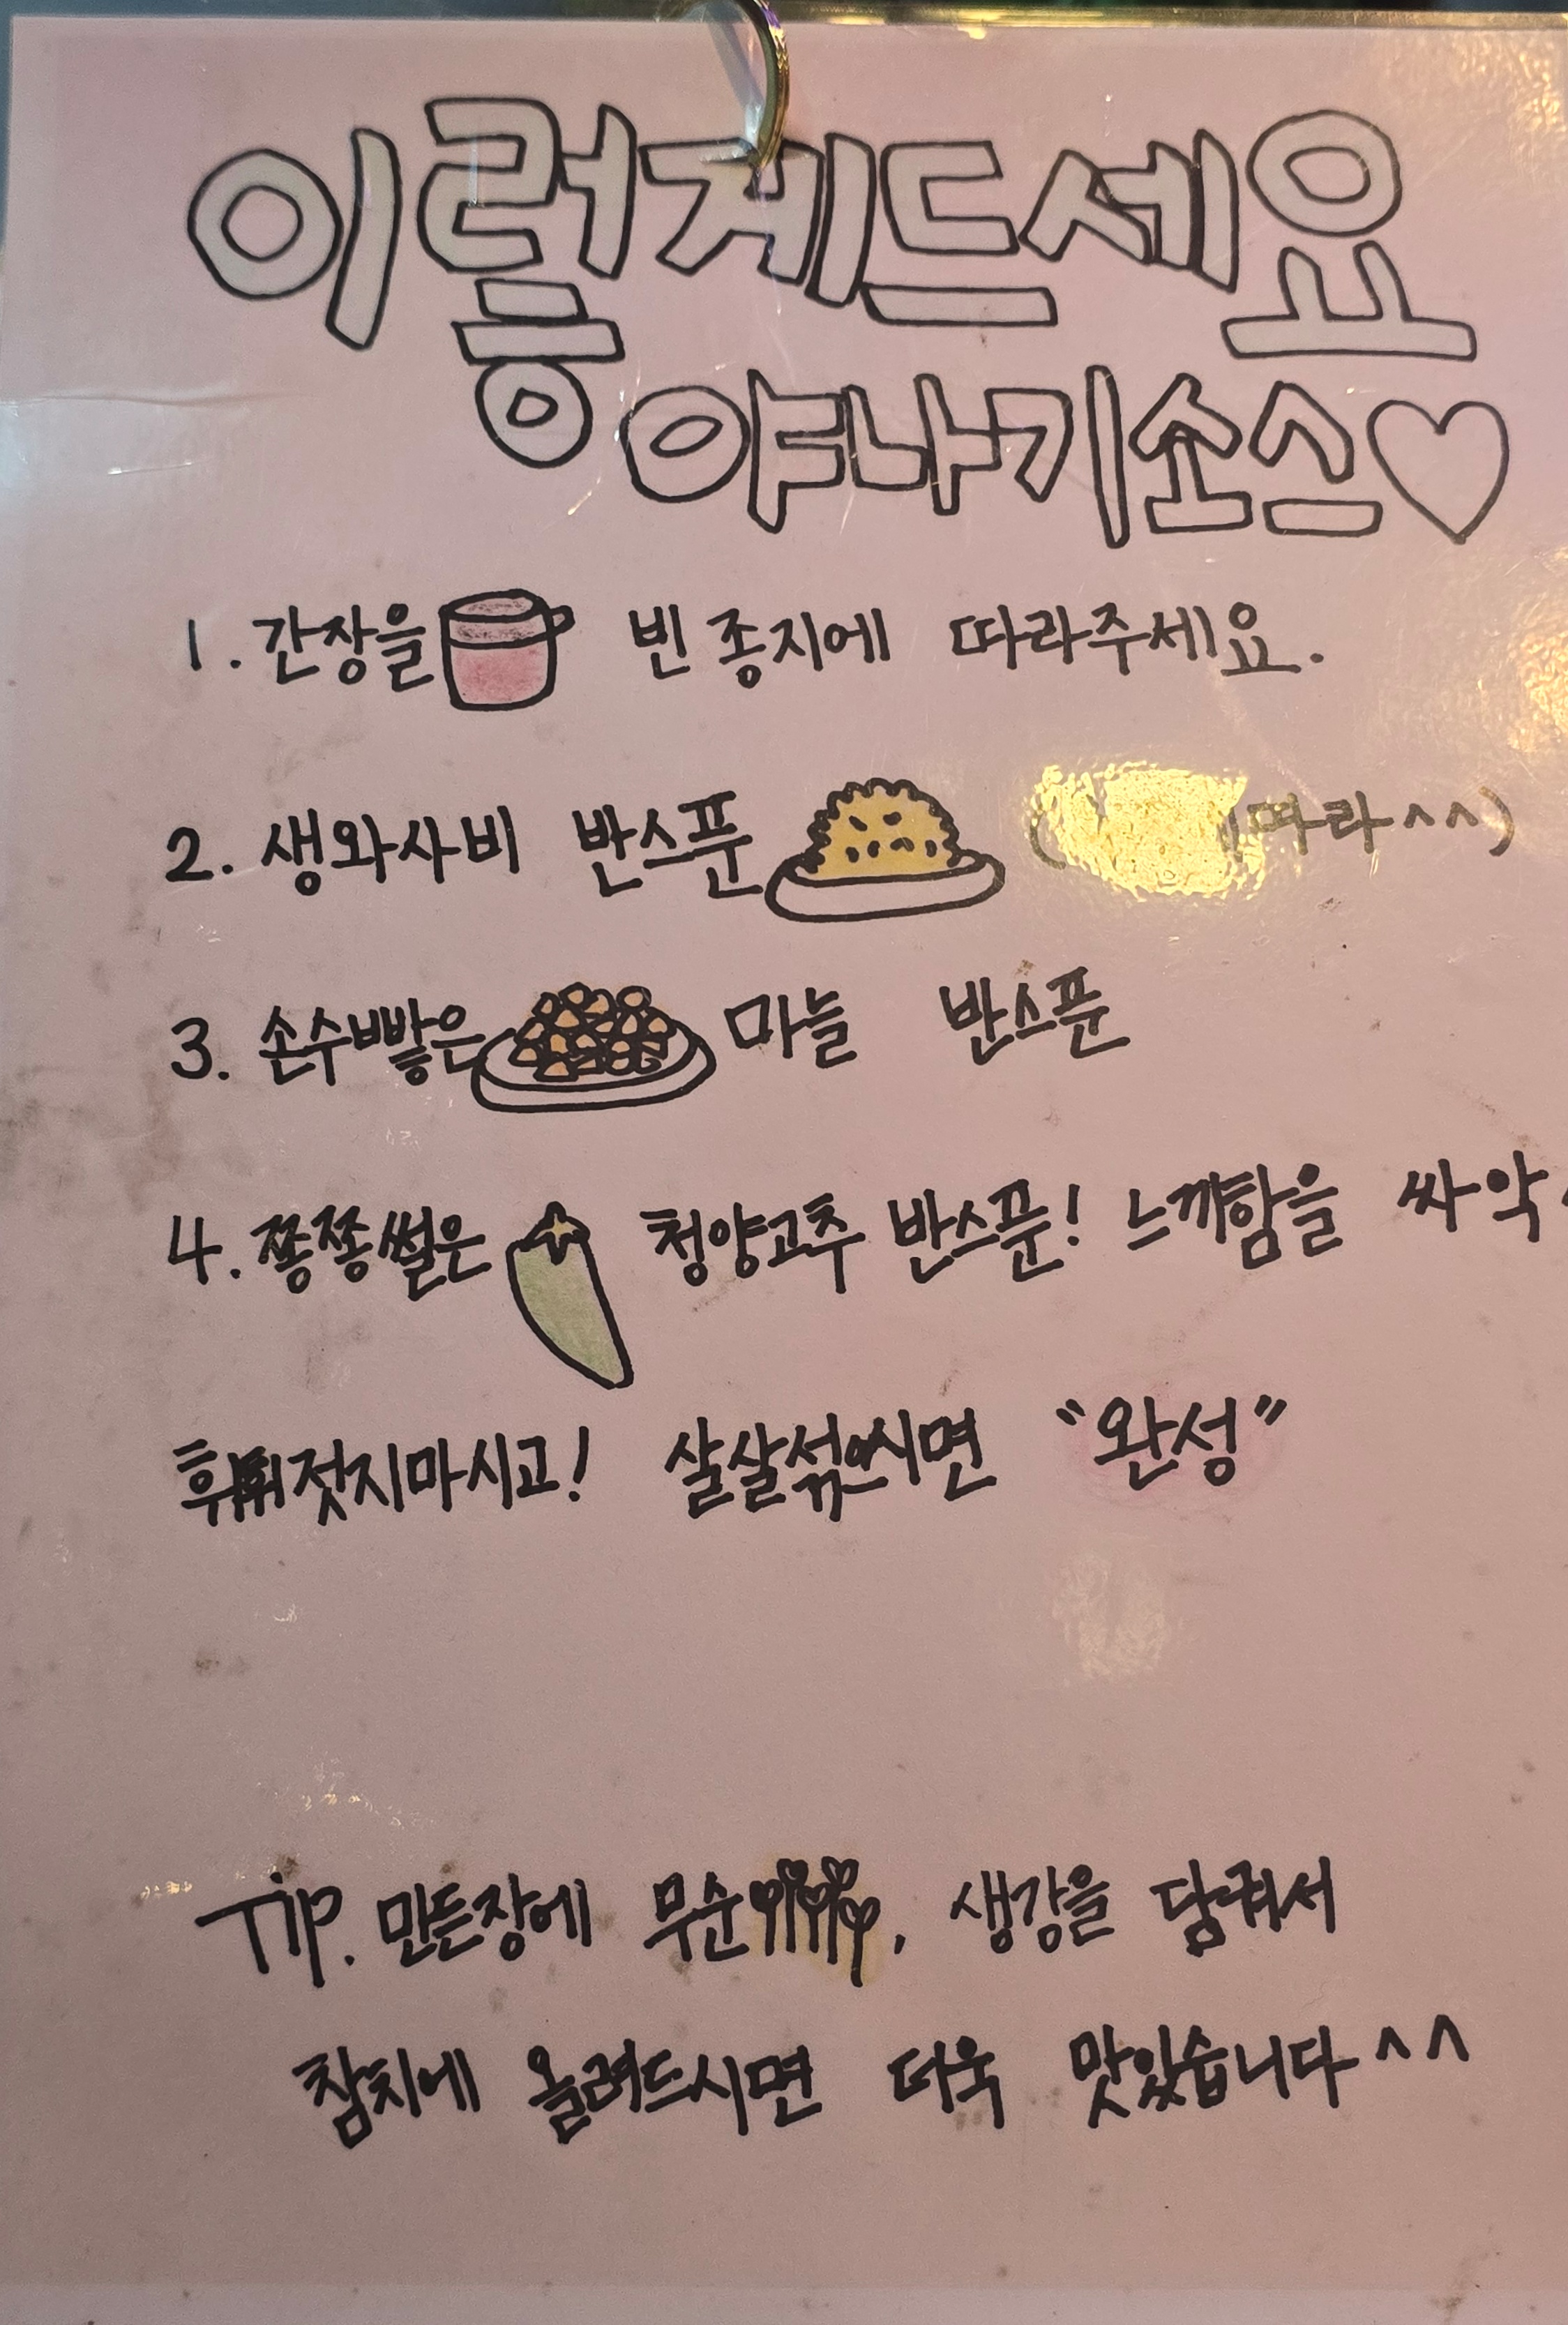 이렇게드세요
야나기소스♡
1. 간장을 빈 종지에 따라주세요.
2. 생와사비 반스푼 ( 따라^^)
3. 손수빻은 마늘 반스푼
4. 쫑쫑썰은 청양고추 반스푼! 느끼함을 싸악
휘휘젓지마시고! 살살섞으시면 "완성"
Tip. 만든장에 무순, 생강을 담궈서
참치에 올려드시면 더욱 맛있습니다^^